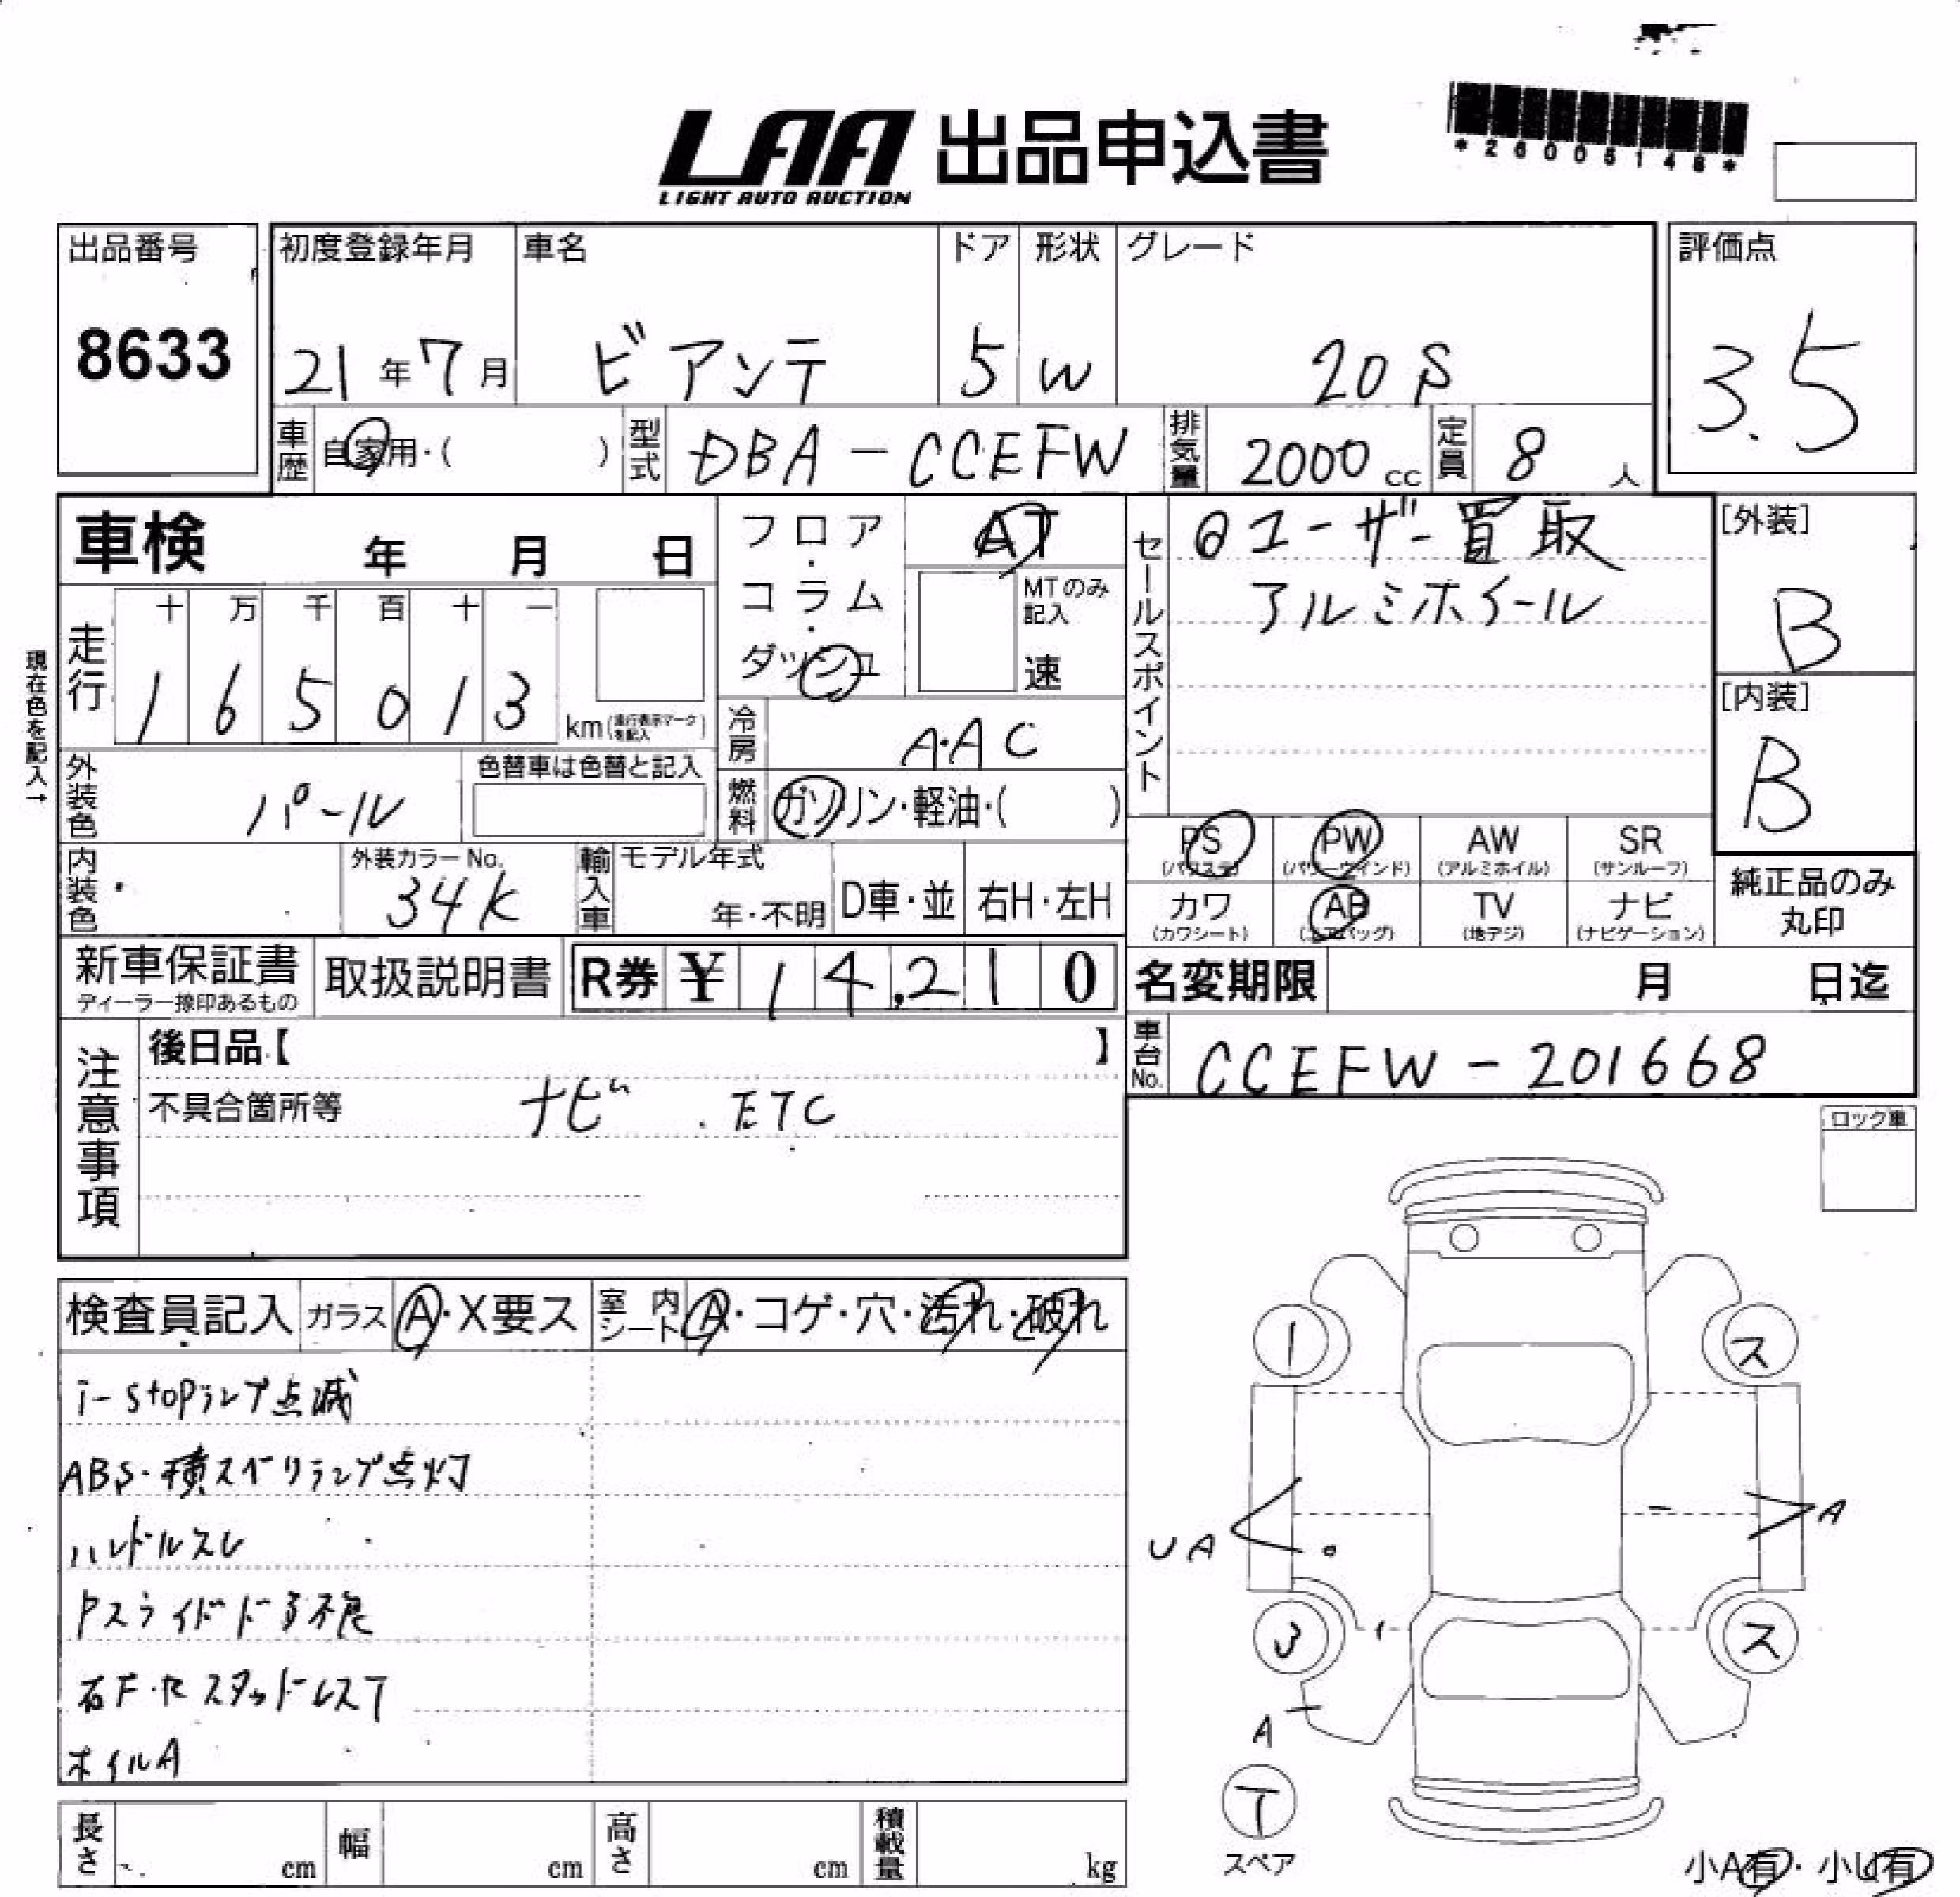 LAA 出品申込書
LIGHT AUTO AUCTION
*26005148*
出品番号
8633
初度登録年月
21年7月
車名
ビアンテ
ドア
5
形状
W
グレード
20S
評価点
3.5
車歴
自家用・( )
型式
DBA-CCEFW
排気量
2000cc
定員
8人
車検 年 月 日
フロア・コラム・ダッシュ
AT
MTのみ記入
速
セールスポイント
ユーザー買取
アルミホイール
[外装]
B
[内装]
B
現在色を記入→
走行
十 万 千 百 十 一
1 6 5 0 1 3
km(走行表示マークを記入)
冷房
A・AC
外装色
パール
色替車は色替と記入
燃料
ガソリン・軽油・( )
PS (パワステ)
PW (パワーウインド)
AW (アルミホイル)
SR (サンルーフ)
カワ (カワシート)
AB (エアバッグ)
TV (地デジ)
ナビ (ナビゲーション)
純正品のみ
丸印
内装色
外装カラーNo.
34K
輸入車
モデル年式
年・不明
D車・並
右H・左H
新車保証書
ディーラー捺印あるもの
取扱説明書
R券 ¥ 14,210
名変期限 月 日迄
車台No.
CCEFW-201668
注意事項
後日品【 】
不具合箇所等
ナビ . ETC
ロック車
検査員記入
ガラス A・X要ス
室内シート A・コゲ・穴・汚れ・破れ
i-stopランプ点滅
ABS・横スベリランプ点灯
ハンドルスレ
Pスライドドア不良
右F・R スタッドレスT
ホイルA
1
ス
UA
A
3
ス
A
T
スペア
小A有・小U有
長さ cm
幅 cm
高さ cm
積載量 kg